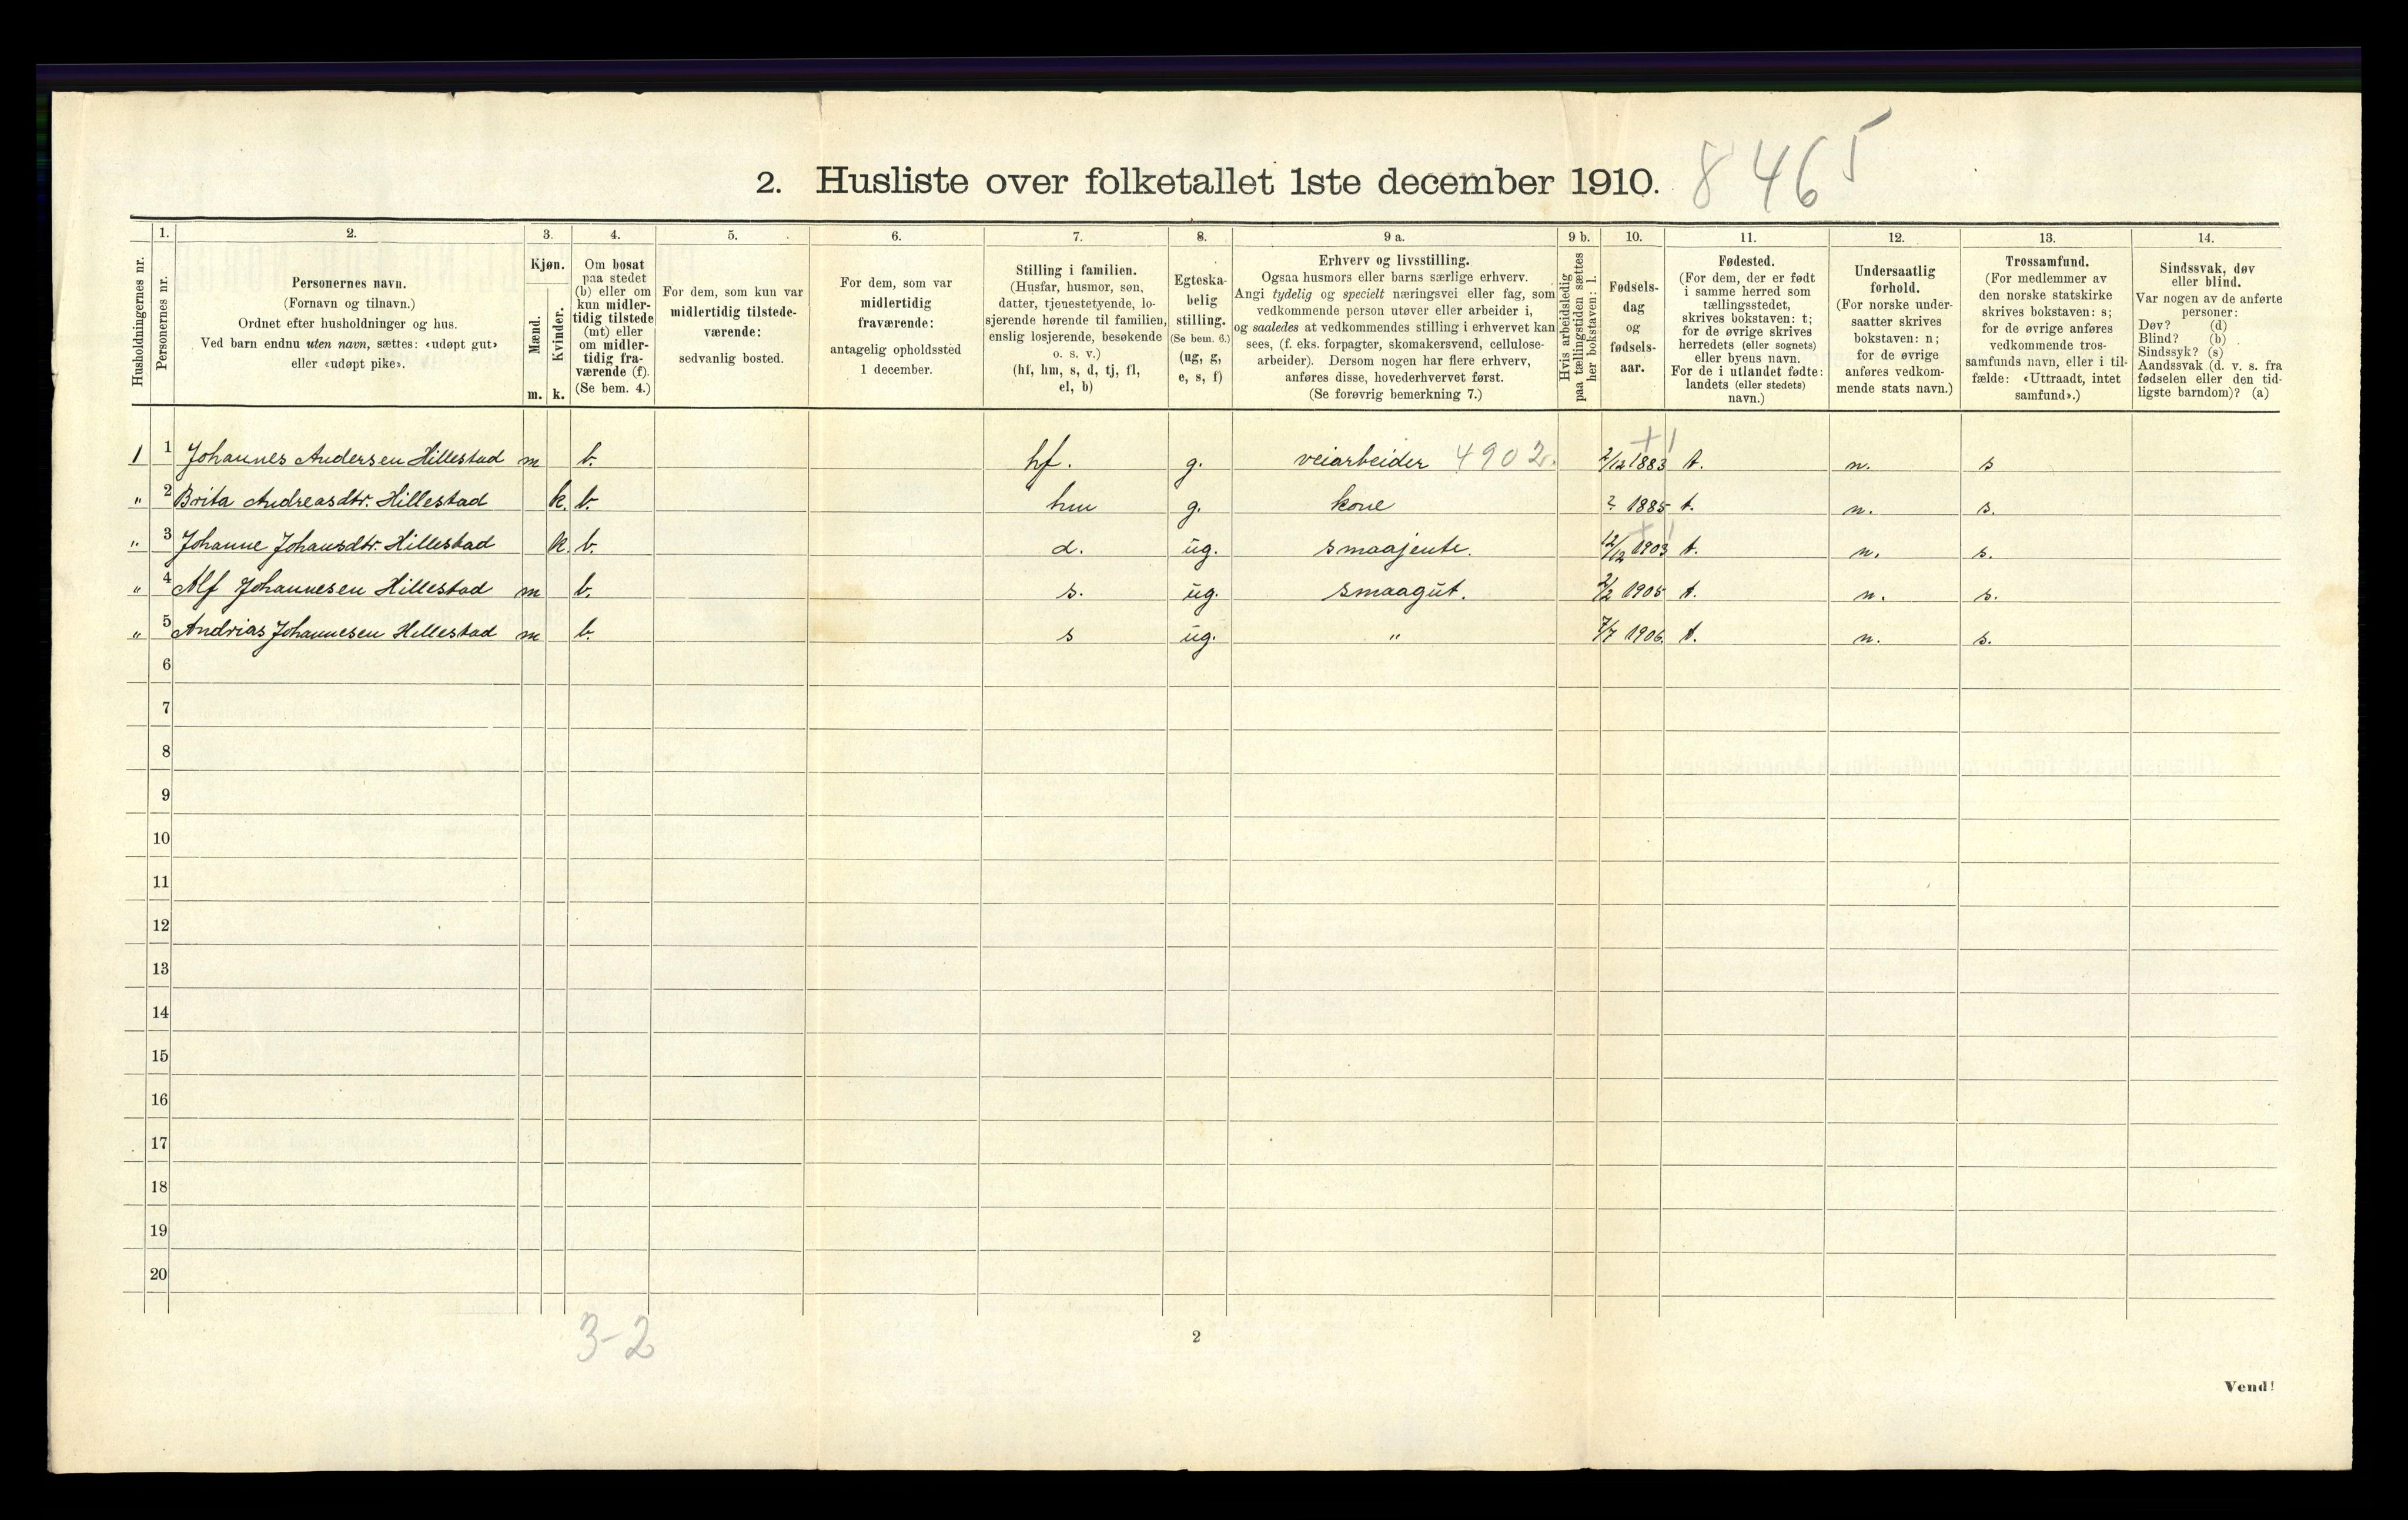 8465
2. Husliste over folketallet 1ste december 1910.
Husholdningernes nr.
1.
Personernes nr.
2.
Personernes navn.
(Fornavn og tilnavn.)
Ordnet efter husholdninger og hus.
Ved barn endnu uten navn, sættes: «udøpt gut»
eller «udøpt pike».
3.
Kjøn.
Mænd.
m.
Kvinder.
k.
4.
Om bosat
paa stedet
(b) eller om
kun midler-
tidig tilstede
(mt) eller
om midler-
tidig fra-
værende (f).
(Se bem. 4.)
5.
For dem, som kun var
midlertidig tilstede-
værende:
sedvanlig bosted.
6.
For dem, som var
midlertidig
fraværende:
antagelig opholdssted
1 december.
7.
Stilling i familien.
(Husfar, husmor, søn,
datter, tjenestetyende, lo-
sjerende hørende til familien,
enslig losjerende, besøkende
o. s. v.)
(hf, hm, s, d, tj, fl,
el, b)
8.
Egteska-
belig
stilling.
(Se bem. 6.)
(ug, g,
e, s, f)
9 a.
Erhverv og livsstilling.
Ogsaa husmors eller barns særlige erhverv.
Angi tydelig og specielt næringsvei eller fag, som
vedkommende person utøver eller arbeider i,
og saaledes at vedkommendes stilling i erhvervet kan
sees, (f. eks. forpagter, skomakersvend, cellulose-
arbeider). Dersom nogen har flere erhverv,
anføres disse, hovederhvervet først.
(Se forøvrig bemerkning 7.)
9 b.
Hvis arbeidsledig
paa tællingstiden sættes
her bokstaven: l.
10.
Fødsels-
dag
og
fødsels-
aar.
11.
Fødested.
(For dem, der er født
i samme herred som
tællingsstedet,
skrives bokstaven: t;
for de øvrige skrives
herredets (eller sognets)
eller byens navn.
For de i utlandet fødte:
landets (eller stedets)
navn.)
12.
Undersaatlig
forhold.
(For norske under-
saatter skrives
bokstaven: n;
for de øvrige
anføres vedkom-
mende stats navn.)
13.
Trossamfund.
(For medlemmer av
den norske statskirke
skrives bokstaven: s;
for de øvrige anføres
vedkommende tros-
samfunds navn, eller i til-
fælde: «Uttraadt, intet
samfund».)
14.
Sindssvak, døv
eller blind.
Var nogen av de anførte
personer:
Døv? (d)
Blind? (b)
Sindssyk? (s)
Aandssvak (d. v. s. fra
fødselen eller den tid-
ligste barndom)? (a)
1 1 Johannes Andersen Hillestad m b. hf. g. veiarbeider 4902. 2/12 1883 t. n. s
" 2 Brita Andreasdtr. Hillestad k. b. hm g. kone ? 1885 t. n. s.
" 3 Johanne Johansdtr. Hillestad k. b. d. ug. smaajente. 12/12 1903 t. n. s.
" 4 Alf Johannesen Hillestad m b. s. ug. smaagut. 2/2 1905 t. n. s.
" 5 Andrias Johannesen Hillestad m b. s ug. " 7/7 1906. t. n. s.
6
7
8
9
10
11
12
13
14
15
16
17
18
19
20
3-2
2
Vend!